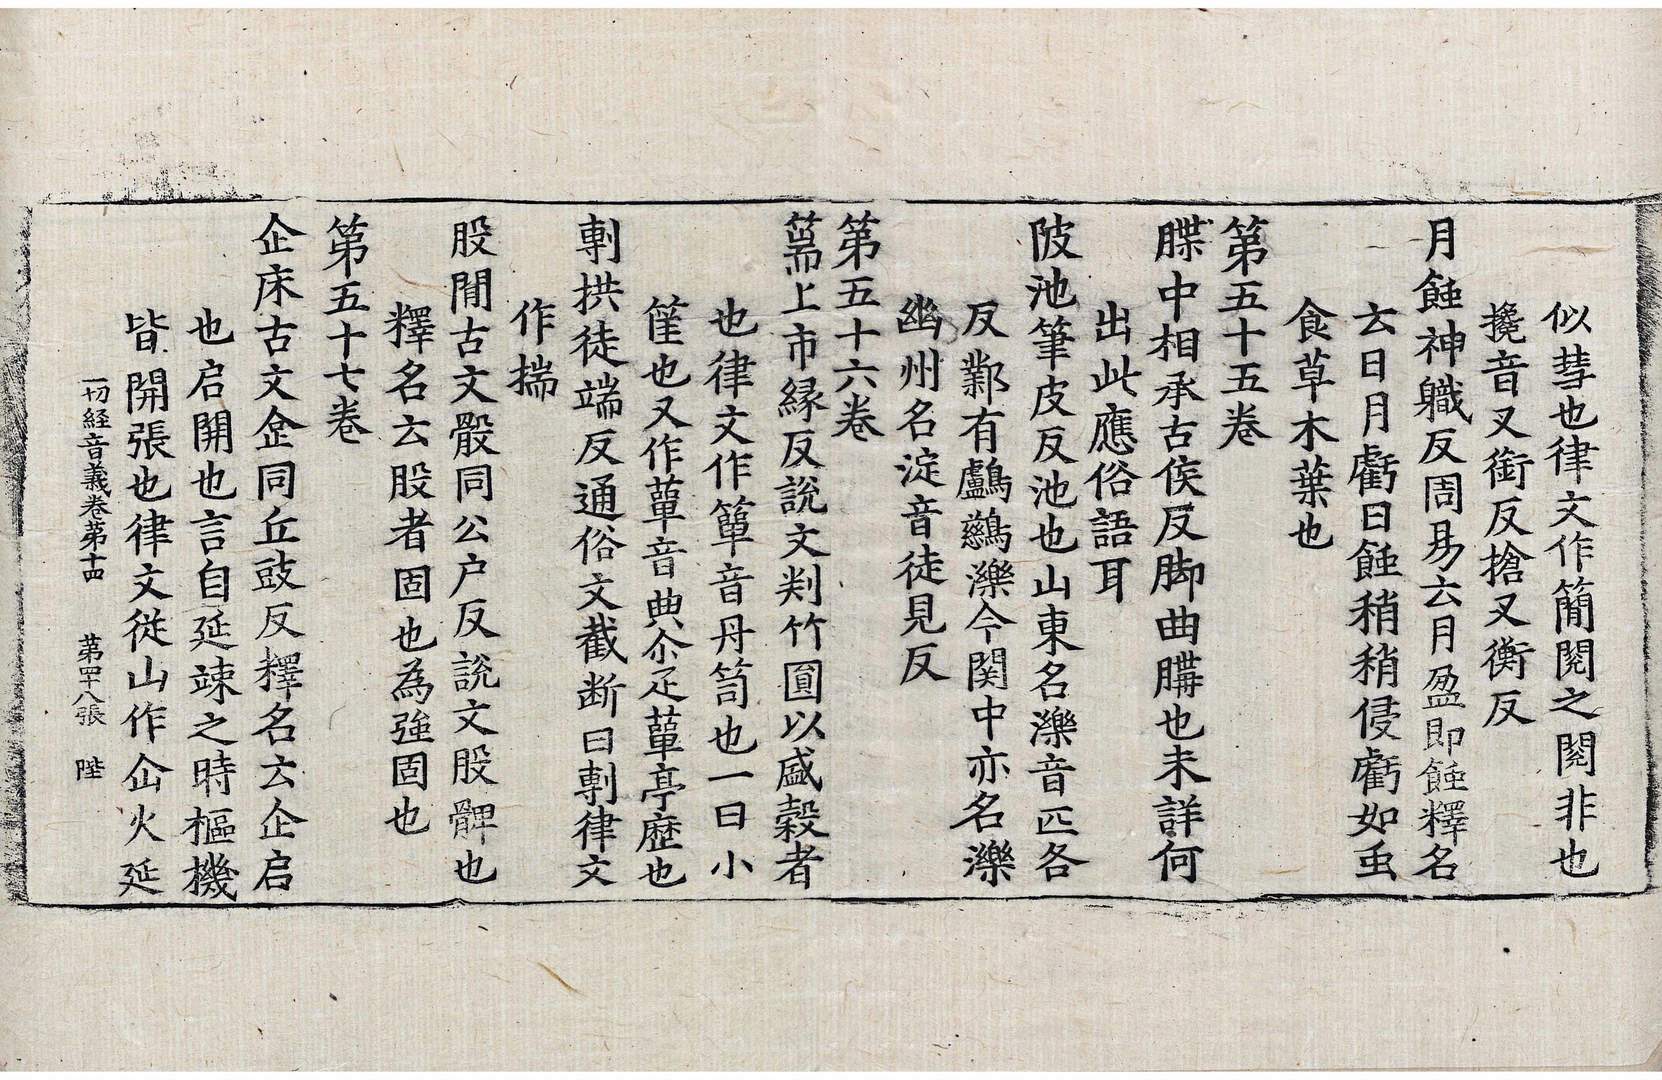 似彗也律文作簡閱之閱非也
攙音叉銜反搶叉衡反
月蝕神職反周易云月盈即蝕釋名
云日月虧曰蝕稍稍侵虧如虫
食草木葉也
第五十五卷
䐑中相承古侯反脚曲䐟也未詳何
出此應俗語耳
陂池筆皮反池也山東名濼音匹各
反鄴有鸕鷀濼今関中亦名濼
幽州名淀音徒見反
第五十六卷
篅上市緣反說文判竹圓以盛穀者
也律文作簞音丹笥也一曰小
筐也又作蕇音典尒疋蕇亭歷也
剸拱徒端反通俗文截断曰剸律文
作揣
股閒古文骰同公户反說文股髀也
釋名云股者固也為強固也
第五十七卷
企床古文𠈮同丘豉反釋名云企启
也启開也言自延竦之時樞機
皆開張也律文従山作仚火延
一切経音義卷第十四 第四十八張 陛